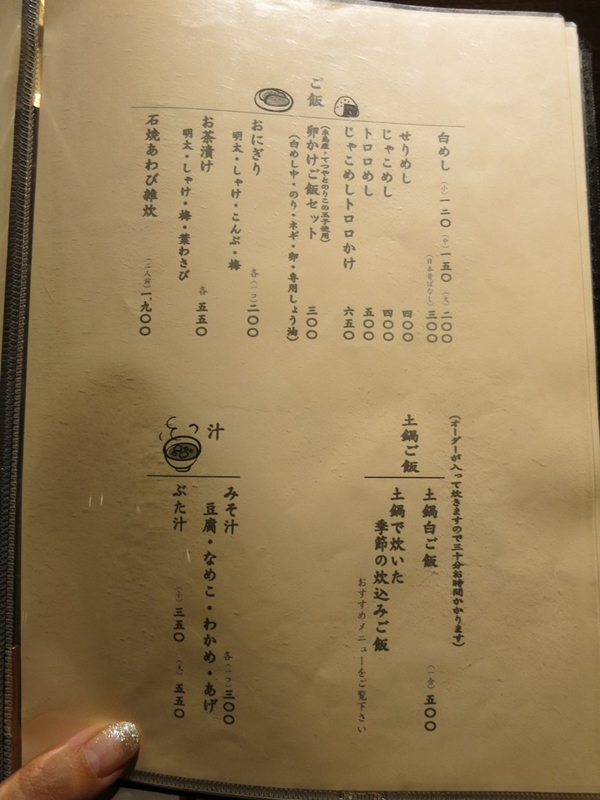 ご飯
白めし （小）一二〇 （中）一五〇 （大）二〇〇
（日本昔ばなし）三〇〇
せりめし 四〇〇
じゃこめし 四〇〇
トロロめし 五〇〇
じゃこめしトロロかけ 六五〇
（糸島産・てつやとのりこの玉子使用）
卵かけご飯セット 三〇〇
（白めし中・のり・ネギ・卵・専用しょう油）
おにぎり 各（一コ）二〇〇
明太・しゃけ・こんぶ・梅
お茶漬け 各 五五〇
明太・しゃけ・梅・葉わさび
石焼あわび雑炊 （二人前）一、九〇〇
（オーダーが入って炊きますので三十分お時間かかります）
土鍋ご飯
土鍋白ご飯 （一合）五〇〇
土鍋で炊いた
季節の炊込みご飯
おすすめメニューをご覧下さい
汁
みそ汁 各（一コ）三〇〇
豆腐・なめこ・わかめ・あげ
ぶた汁 （小）三五〇 （大）五五〇